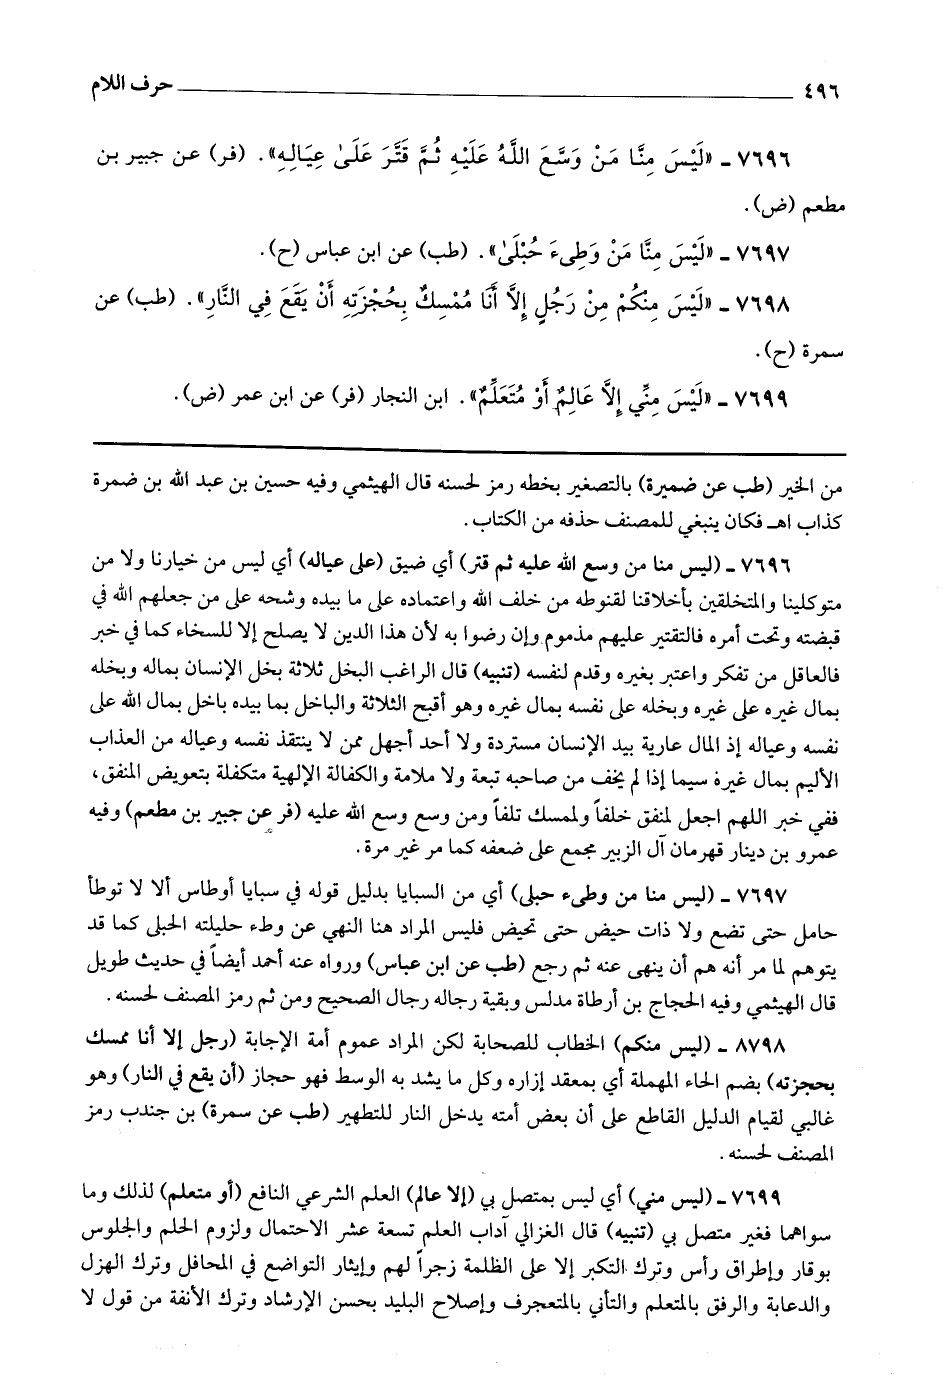 ٤٩٦ حرف اللام
٧٦٩٦ ـ «لَيْسَ مِنَّا مَنْ وَسَّعَ اللَّهُ عَلَيْهِ ثُمَّ قَتَّرَ عَلَىٰ عِيَالِهِ». (فر) عن جبير بن
مطعم (ض).
٧٦٩٧ ـ «لَيْسَ مِنَّا مَنْ وَطِىءَ حُبْلَىٰ». (طب) عن ابن عباس (ح).
٧٦٩٨ ـ «لَيْسَ مِنْكُمْ مِنْ رَجُلٍ إِلاَّ أَنَا مُمْسِكٌ بِحُجْزَتِهِ أَنْ يَقَعَ فِي النَّارِ». (طب) عن
سمرة (ح).
٧٦٩٩ ـ «لَيْسَ مِنِّي إِلاَّ عَالِمٌ أَوْ مُتَعَلِّمٌ». ابن النجار (فر) عن ابن عمر (ض).
من الخير (طب عن ضميرة) بالتصغير بخطه رمز لحسنه قال الهيثمي وفيه حسين بن عبد الله بن ضمرة
كذاب اهـ فكان ينبغي للمصنف حذفه من الكتاب.
٧٦٩٦ ـ (ليس منا من وسع الله عليه ثم قتر) أي ضيق (على عياله) أي ليس من خيارنا ولا من
متوكلينا والمتخلقين بأخلاقنا لقنوطه من خلف الله واعتماده على ما بيده وشحه على من جعلهم الله في
قبضته وتحت أمره فالتقتير عليهم مذموم وإن رضوا به لأن هذا الدين لا يصلح إلا للسخاء كما في خبر
فالعاقل من تفكر واعتبر بغيره وقدم لنفسه (تنبيه) قال الراغب البخل ثلاثة بخل الإنسان بماله وبخله
بمال غيره على غيره وبخله على نفسه بمال غيره وهو أقبح الثلاثة والباخل بما بيده باخل بمال الله على
نفسه وعياله إذ المال عارية بيد الإنسان مستردة ولا أحد أجهل ممن لا ينتقذ نفسه وعياله من العذاب
الأليم بمال غيره سيما إذا لم يخف من صاحبه تبعة ولا ملامة والكفالة الإلهية متكفلة بتعويض المنفق،
ففي خبر اللهم اجعل لمنفق خلفاً ولممسك تلفاً ومن وسع وسع الله عليه (فر عن جبير بن مطعم) وفيه
عمرو بن دينار قهرمان آل الزبير مجمع على ضعفه كما مر غير مرة.
٧٦٩٧ ـ (ليس منا من وطىء حبلى) أي من السبايا بدليل قوله في سبايا أوطاس ألا لا توطأ
حامل حتى تضع ولا ذات حيض حتى تحيض فليس المراد هنا النهي عن وطء حليلته الحبلى كما قد
يتوهم لما مر أنه هم أن ينهى عنه ثم رجع (طب عن ابن عباس) ورواه عنه أحمد أيضاً في حديث طويل
قال الهيثمي وفيه الحجاج بن أرطاة مدلس وبقية رجاله رجال الصحيح ومن ثم رمز المصنف لحسنه.
٨٧٩٨ ـ (ليس منكم) الخطاب للصحابة لكن المراد عموم أمة الإجابة (رجل إلا أنا ممسك
بحجزته) بضم الحاء المهملة أي بمعقد إزاره وكل ما يشد به الوسط فهو حجاز (أن يقع في النار) وهو
غالبي لقيام الدليل القاطع على أن بعض أمته يدخل النار للتطهير (طب عن سمرة) بن جندب رمز
المصنف لحسنه.
٧٦٩٩ ـ (ليس مني) أي ليس بمتصل بي (إلا عالم) العلم الشرعي النافع (أو متعلم) لذلك وما
سواهما فغير متصل بي (تنبيه) قال الغزالي آداب العلم تسعة عشر الاحتمال ولزوم الحلم والجلوس
بوقار وإطراق رأس وترك التكبر إلا على الظلمة زجراً لهم وإيثار التواضع في المحافل وترك الهزل
والدعابة والرفق بالمتعلم والتأني بالمتعجرف وإصلاح البليد بحسن الإرشاد وترك الأنفة من قول لا